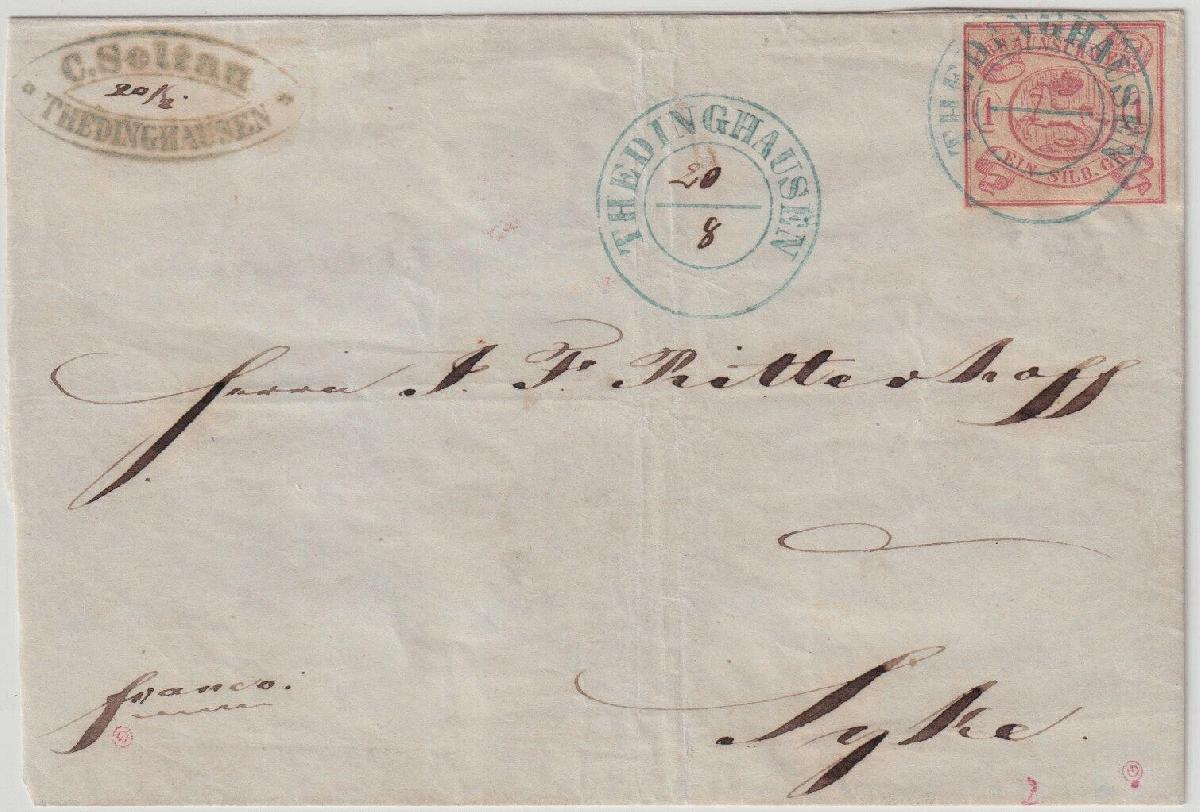 C. Soltau
20/8.
THEDINGHAUSEN
THEDINGHAUSEN
20
8
THEDINGHAUSEN
BRAUNSCHWEIG
1 1
EIN SILB. GR.
Herrn J. F. Ritterhoff
franco.
Syke.